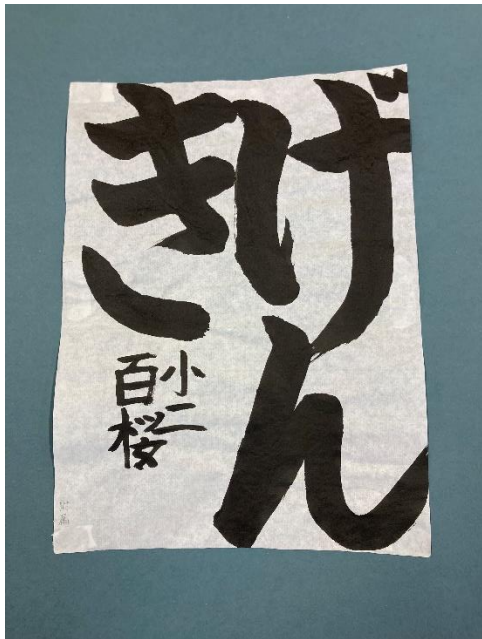 げん
き
小二
百桜